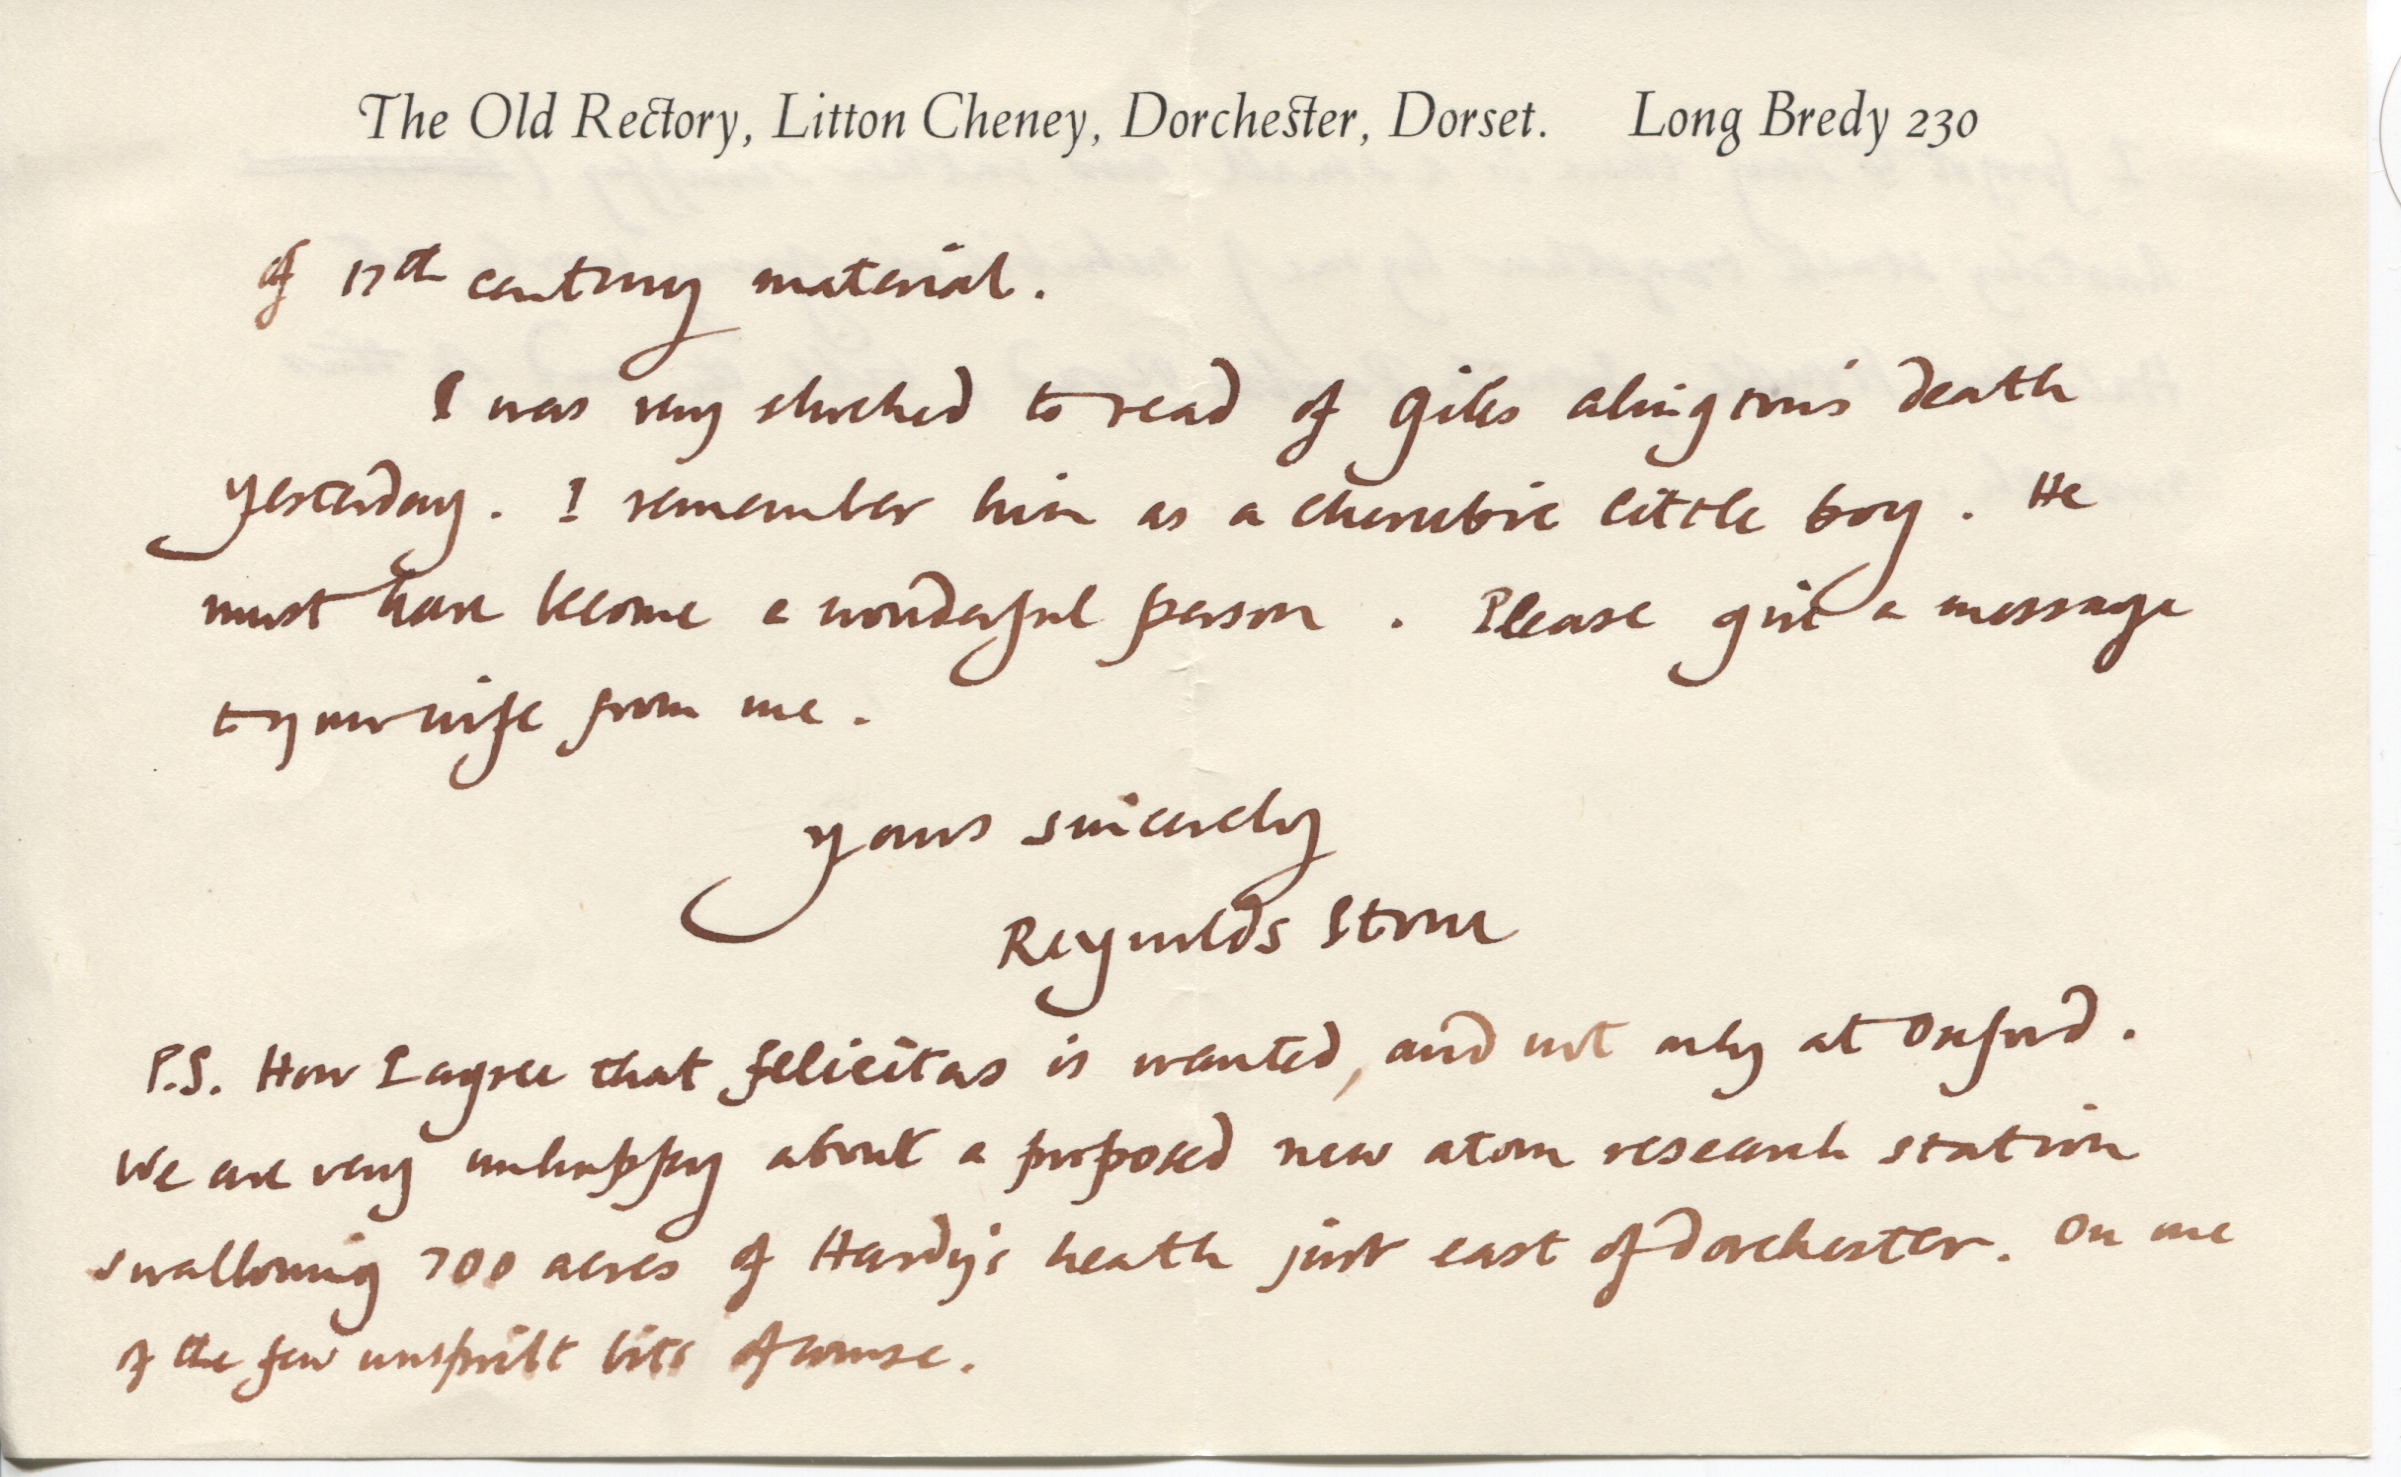 The Old Rectory, Litton Cheney, Dorchester, Dorset. Long Bredy 230
of 17th century material.
I was very shocked to read of Giles Alington's death
yesterday. I remember him as a cherubic little boy. He
must have become a wonderful person. Please give a message
to your wife from me.
Yours sincerely
Reynolds Stone
P.S. How I agree that Felicitas is wanted, and not only at Oxford.
We are very unhappy about a proposed new atom research station
swallowing 700 acres of Hardy's heath just east of Dorchester. On one
of the few unspoilt bits of course.